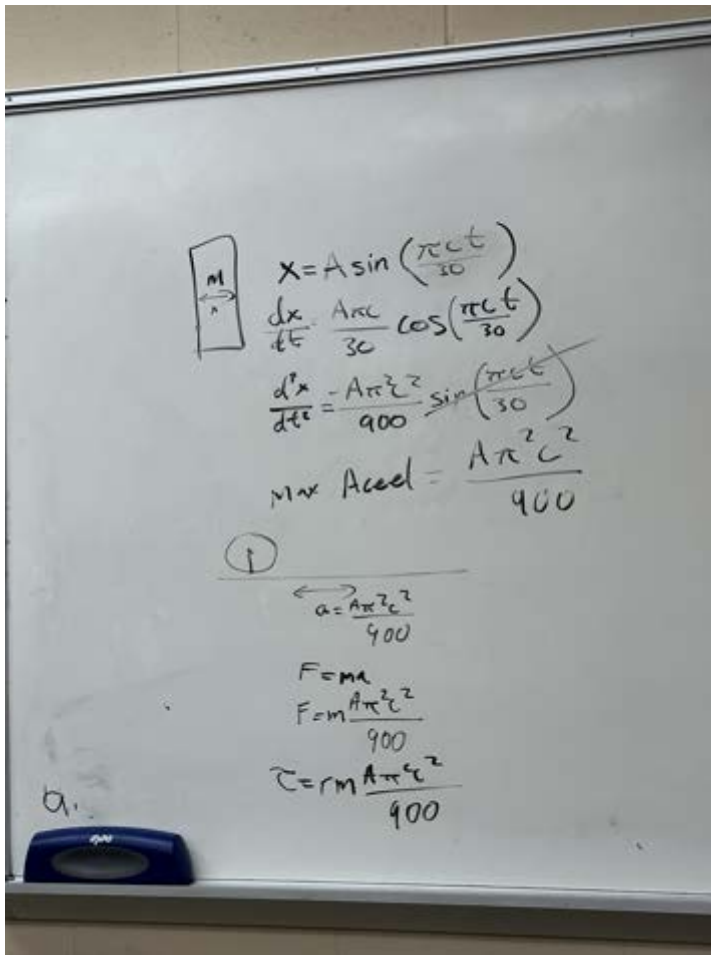 M
x = A sin (πct/30)
dx/dt = Aπc/30 cos(πct/30)
d²x/dt² = -Aπ²c²/900 sin(πct/30)
Max Accel = Aπ²c²/900
1
a = Aπ²c²/900
F = ma
F = m Aπ²c²/900
τ = rm Aπ²c²/900
a.